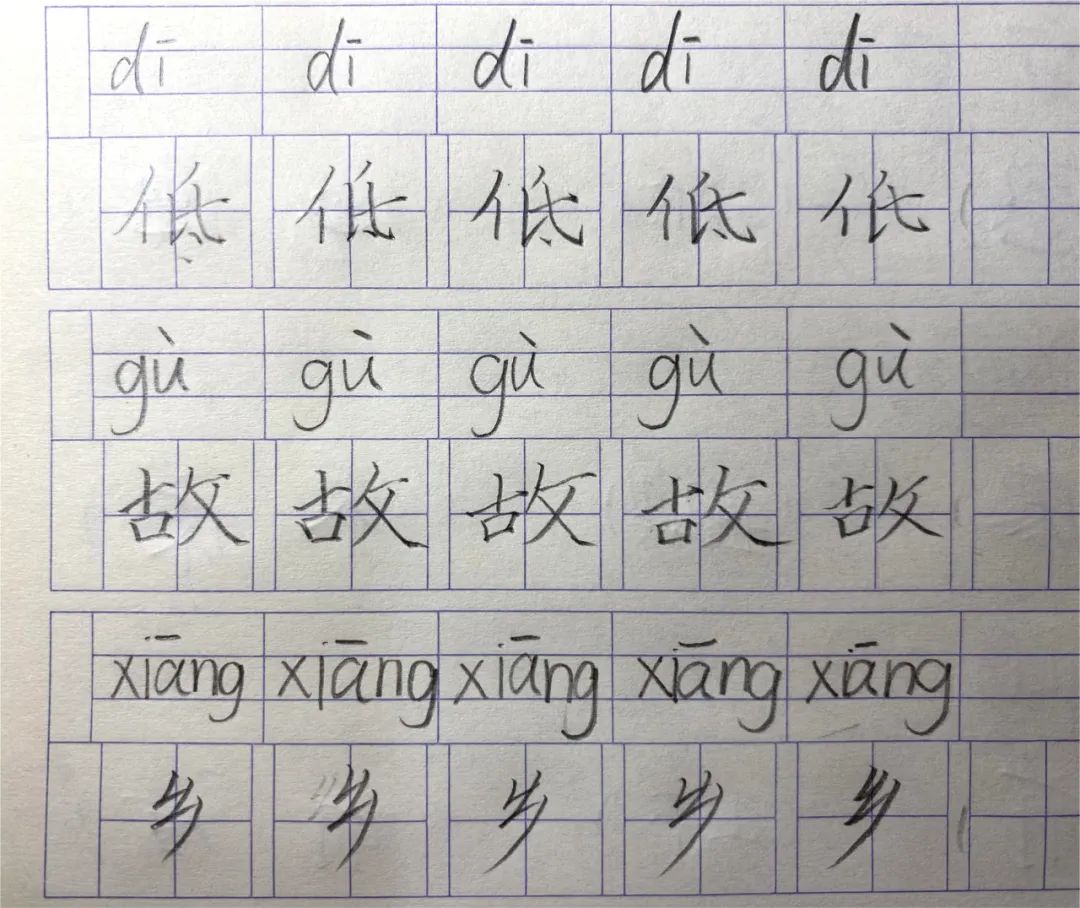 dī dī dī dī dī
低 低 低 低 低
gù gù gù gù gù
故 故 故 故 故
xiāng xiāng xiāng xiāng xiāng
乡 乡 乡 乡 乡